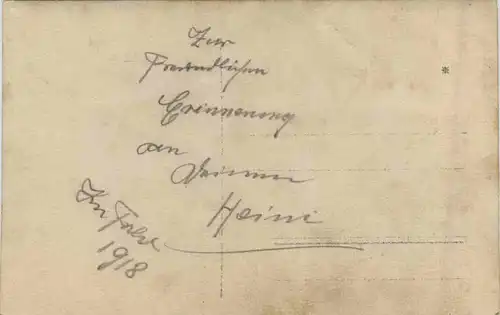 Zur
Freundlichen
Erinnerung
an
Deinen
Heini
Im Felde
1918